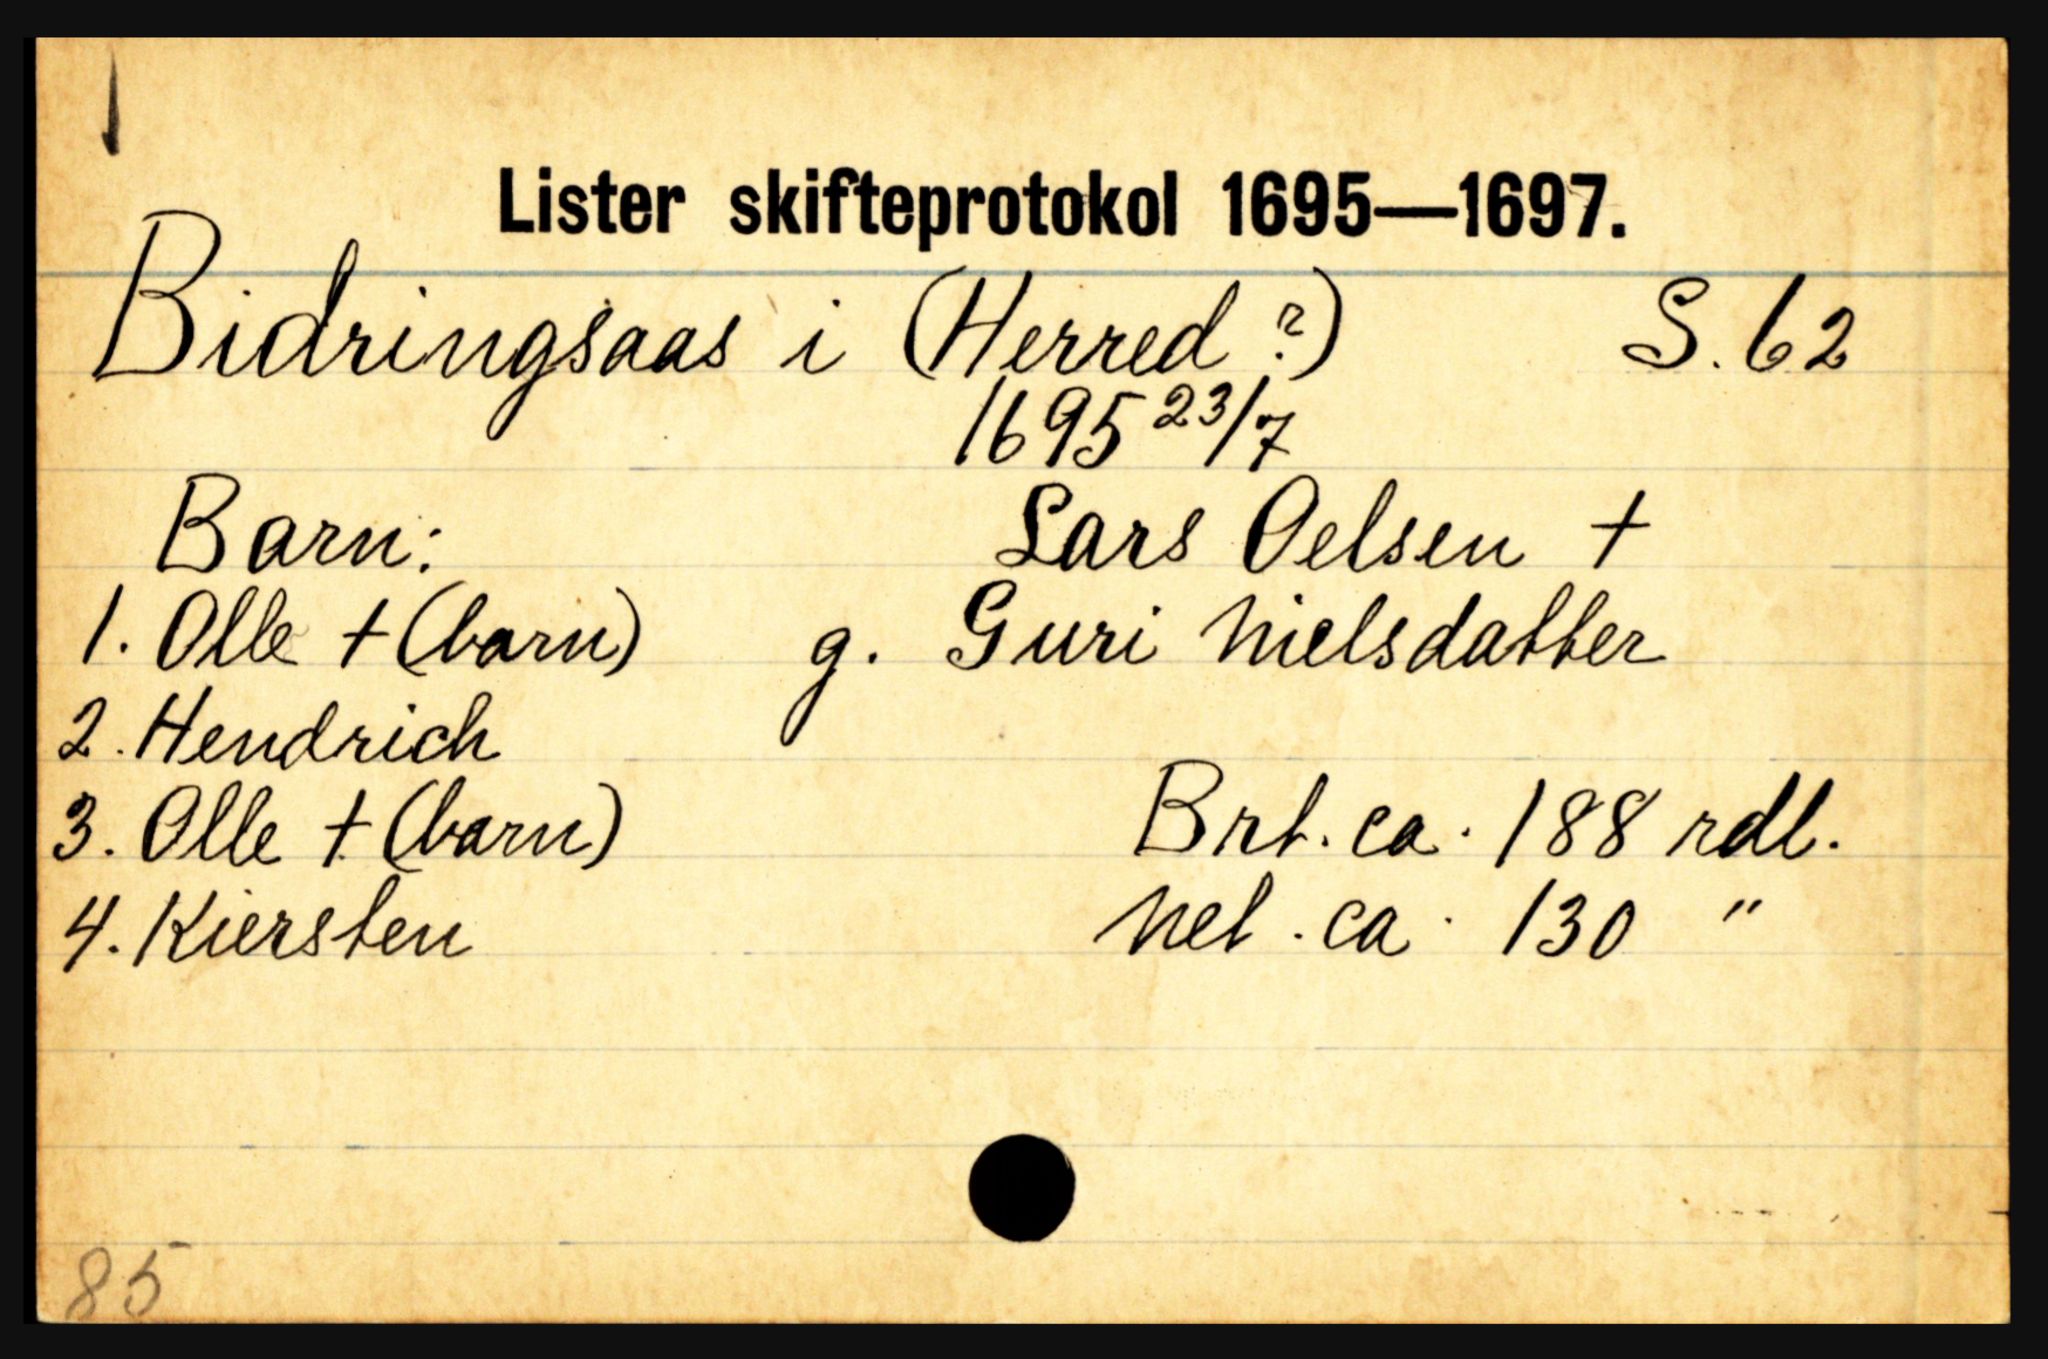 Lister skifteprotokol 1695—1697.
Bidringsaas i (Herred ?) S. 62
1695 23/7
Barn: Lars Oelsen †
1. Olle † (barn) g. Guri Nielsdatter
2. Hendrich
3. Olle † (barn) Brt. ca. 188 rdl.
4. Kiersten Net. ca. 130 "
85